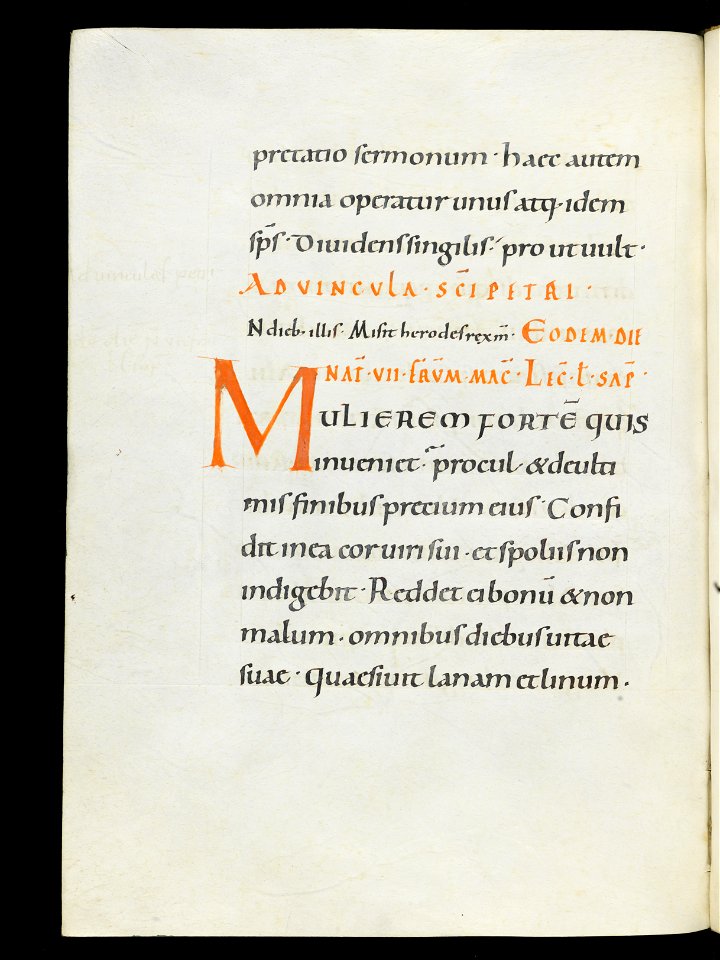 pretatio sermonum · haec autem
omnia operatur unus atq· idem
sp̄s · Diuidens singilis · pro ut uult ·
AD VINCVLA · SC̄I PETRI ·
N dieb· illis · Misit herodes rex m̄ · EODEM DIE
NAT̄ · VII · FR̄VM · MAC̄ · LEC̄ · L̄ · SAP̄ ·
MULIEREM FORTĒ quis
inueniet · procul · & de ulti
mis finibus precium eius · Confi
dit in ea cor uiri sui · et spoliis non
indigebit · Reddet ei bonū & non
malum · omnibus diebus uitae
suae · quaesiuit lanam et linum ·